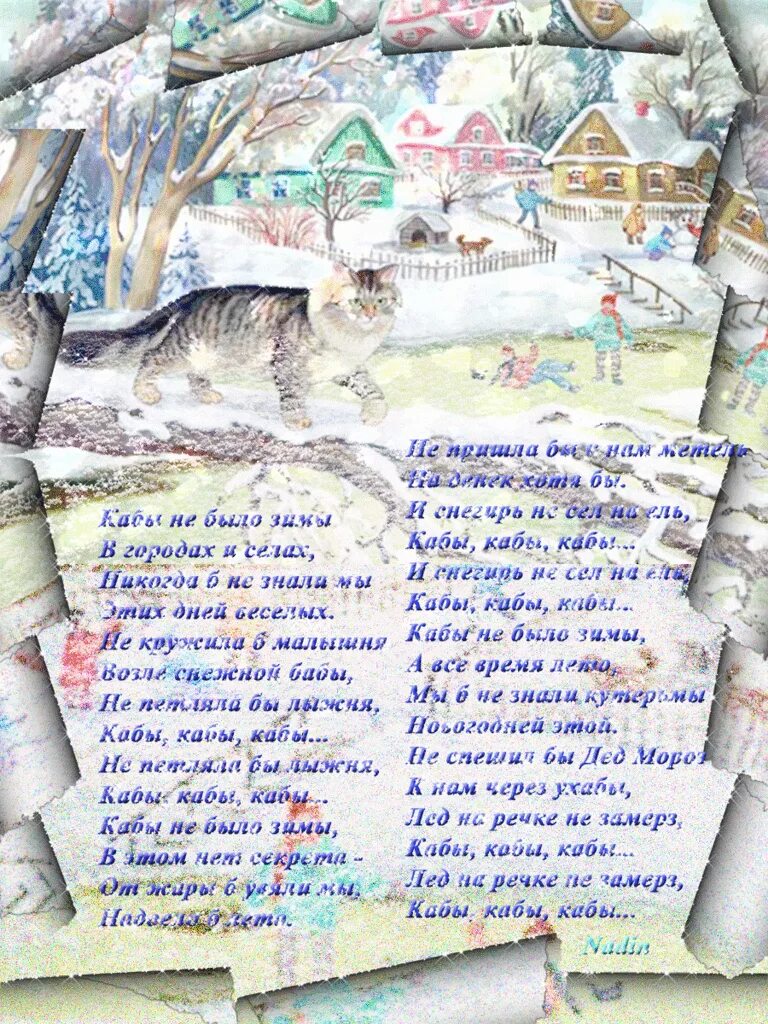 Кабы не было зимы
В городах и селах,
Никогда б не знали мы
Этих дней веселых.
Не кружила б малышня
Возле снежной бабы,
Не петляла бы лыжня,
Кабы, кабы, кабы...
Не петляла бы лыжня,
Кабы, кабы, кабы...
Кабы не было зимы,
В этом нет секрета -
От жары б увяли мы,
Надоело б лето.
Не пришла бы к нам метель
На денек хотя бы.
И снегирь не сел на ель,
Кабы, кабы, кабы...
И снегирь не сел на ель,
Кабы, кабы, кабы...
Кабы не было зимы,
А все время лето,
Мы б не знали кутерьмы
Новогодней этой.
Не спешил бы Дед Мороз
К нам через ухабы,
Лед на речке не замерз,
Кабы, кабы, кабы...
Лед на речке не замерз,
Кабы, кабы, кабы...
Nadin